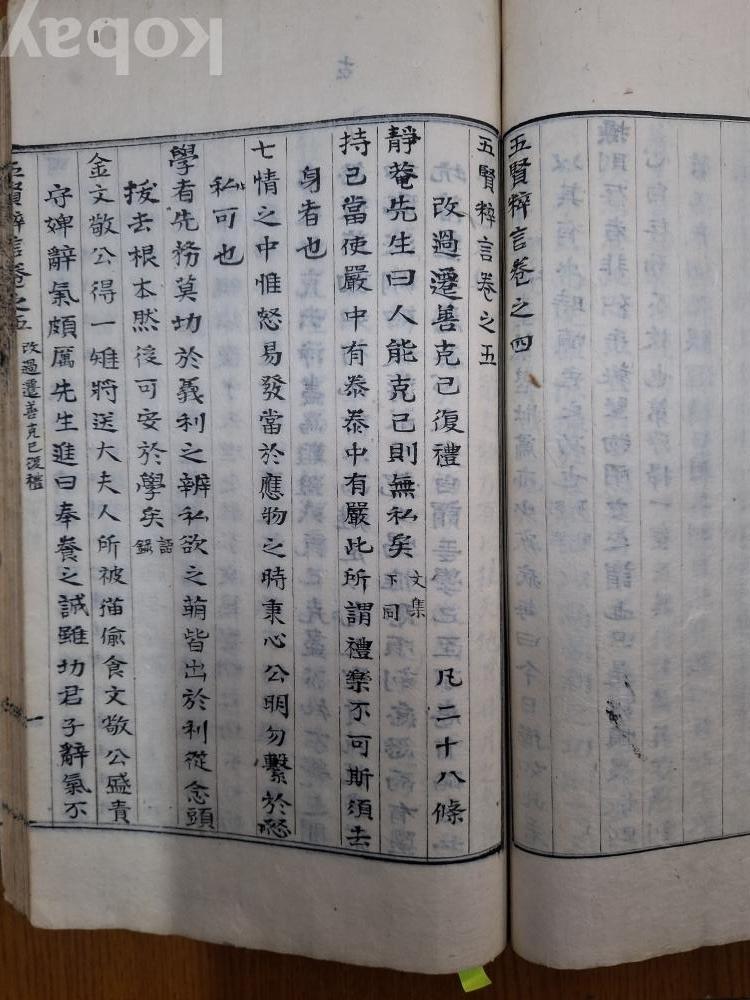 kobay
五賢粹言卷之四
五賢粹言卷之五
改過遷善克己復禮 凡二十八條
靜菴先生曰人能克己則無私矣 文集下同
持己當使嚴中有泰泰中有嚴此所謂禮樂不可斯須去
身者也
七情之中惟怒易發當於應物之時秉心公明勿繫於
私可也
學者先務莫切於義利之辨私欲之萌皆出於利從念頭
拔去根本然後可安於學矣 語錄
金文敬公得一雉將送大夫人所被猫偷食文敬公盛責
守婢辭氣頗厲先生進曰奉養之誠雖切君子辭氣不
五賢粹言卷之五 改過遷善克己復禮 一